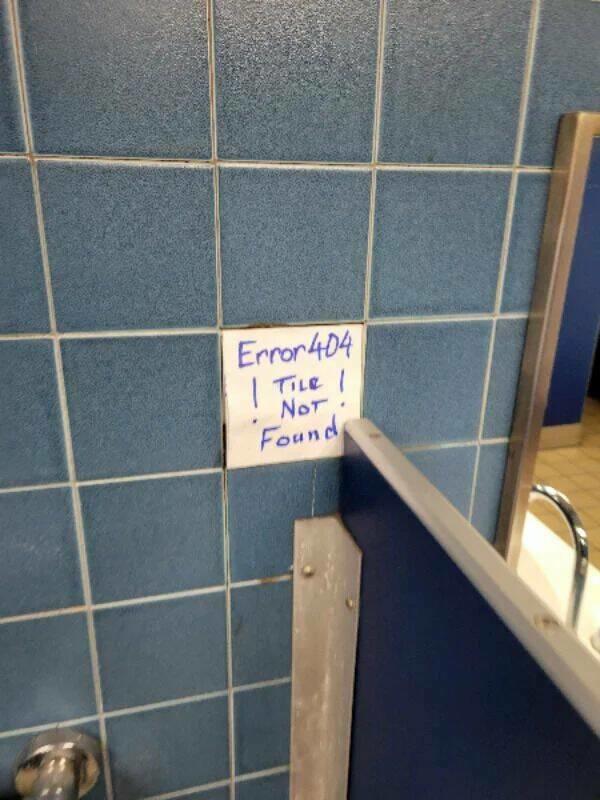 Error 404
! TILE !
NOT
Found